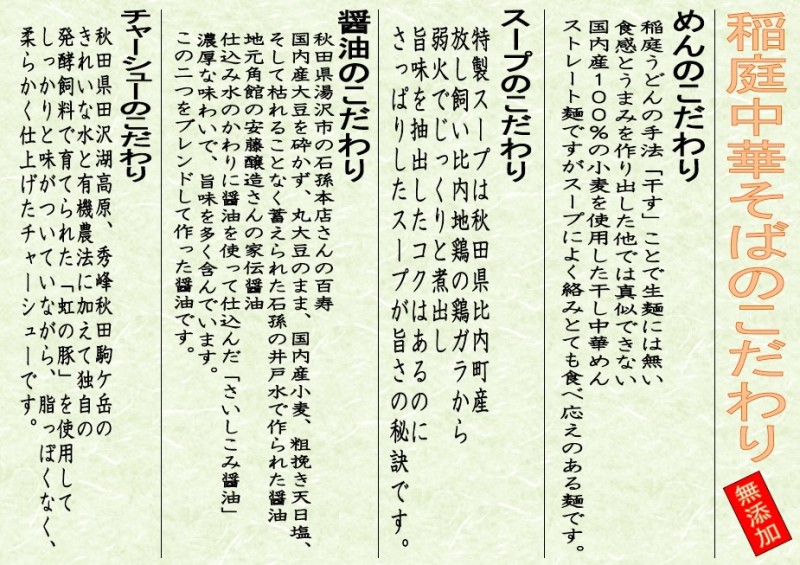 稲庭中華そばのこだわり
無添加
めんのこだわり
稲庭うどんの手法「干す」ことで生麺には無い
食感とうまみを作り出した他では真似できない
国内産100％の小麦を使用した干し中華めん
ストレート麺ですがスープによく絡みとても食べ応えのある麺です。
スープのこだわり
特製スープは秋田県比内町産
放し飼い比内地鶏の鶏ガラから
弱火でじっくりと煮出し
旨味を抽出したコクはあるのに
さっぱりしたスープが旨さの秘訣です。
醤油のこだわり
秋田県湯沢市の石孫本店さんの百寿
国内産大豆を砕かず、丸大豆のまま、国内産小麦、粗挽き天日塩、
そして枯れることなく蓄えられた石孫の井戸水で作られた醤油
地元角館の安藤醸造さんの家伝醤油
仕込み水のかわりに醤油を使って仕込んだ「さいしこみ醤油」
濃厚な味わいで、旨味を多く含んでいます。
この二つをブレンドして作った醤油です。
チャーシューのこだわり
秋田県田沢湖高原、秀峰秋田駒ケ岳の
きれいな水と有機農法に加えて独自の
発酵飼料で育てられた「虹の豚」を使用して
しっかりと味がついていながら、脂っぽくなく、
柔らかく仕上げたチャーシューです。